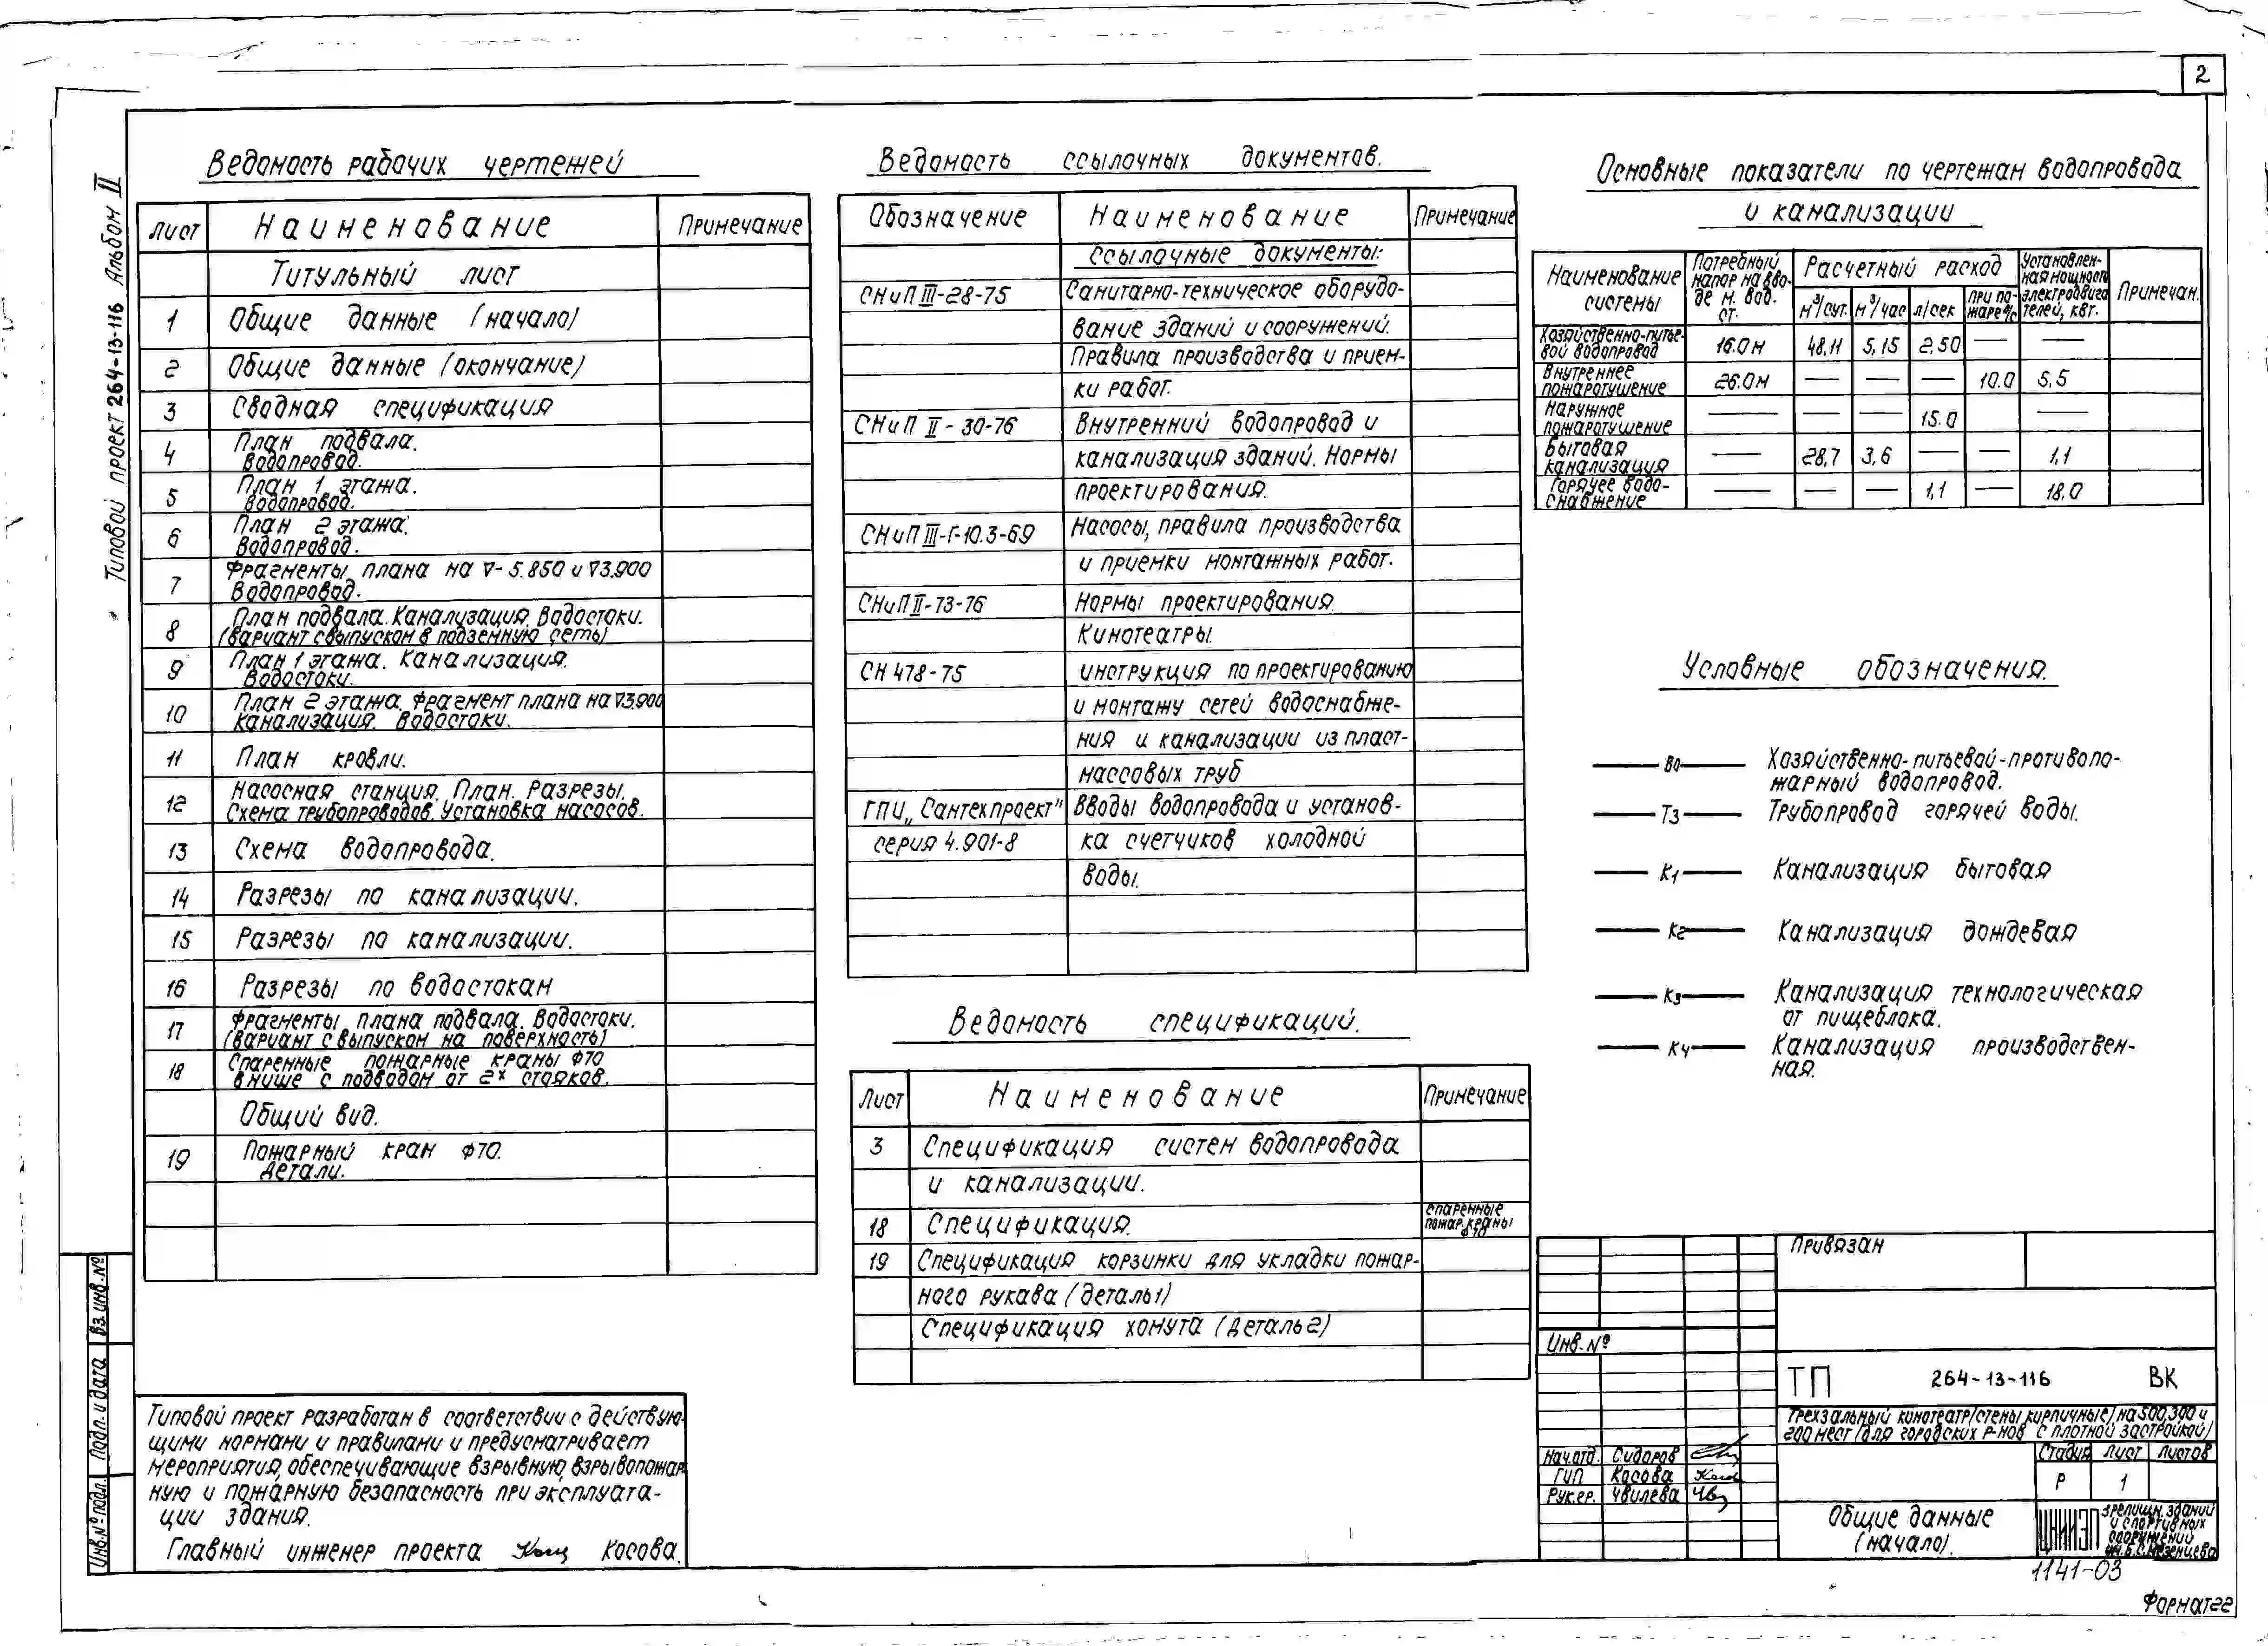 2
Типовой проект 264-13-116 Альбом II
Ведомость рабочих чертежей
Лист Наименование Примечание
Титульный лист
1 Общие данные (начало)
2 Общие данные (окончание)
3 Сводная спецификация
4 План подвала.
Водопровод.
5 План 1 этажа.
Водопровод.
6 План 2 этажа.
Водопровод.
7 Фрагменты плана на ∇-5.850 и ∇3.900
Водопровод.
8 План подвала. Канализация. Водостоки.
(вариант с выпуском в подземную сеть)
9 План 1 этажа. Канализация.
Водостоки.
10 План 2 этажа. Фрагмент плана на ∇3.900
Канализация. Водостоки.
11 План кровли.
12 Насосная станция. План. Разрезы.
Схема трубопроводов. Установка насосов.
13 Схема водопровода.
14 Разрезы по канализации.
15 Разрезы по канализации.
16 Разрезы по водостокам
17 Фрагменты плана подвала. Водостоки.
(вариант с выпуском на поверхность)
18 Спаренные пожарные краны Ф70
в нише с подводом от 2х стояков.
Общий вид.
19 Пожарный кран Ф70.
Детали.
Ведомость ссылочных документов.
Обозначение Наименование Примечание
Ссылочные документы:
СНиП III-28-75 Санитарно-техническое оборудо-
вание зданий и сооружений.
Правила производства и прием-
ки работ.
СНиП II-30-76 Внутренний водопровод и
канализация зданий. Нормы
проектирования.
СНиП III-Г-10.3-69 Насосы, правила производства
и приемки монтажных работ.
СНиП II-73-76 Нормы проектирования.
Кинотеатры.
СН 478-75 инструкция по проектированию
и монтажу сетей водоснабже-
ния и канализации из пласт-
массовых труб
ГПИ „Сантехпроект" Вводы водопровода и установ-
серия 4.901-8 ка счетчиков холодной
воды.
Ведомость спецификаций.
Лист Наименование Примечание
3 Спецификация систем водопровода
и канализации.
18 Спецификация. спаренные
пожар.краны
Ф70
19 Спецификация корзинки для укладки пожар-
ного рукава (деталь 1)
Спецификация хомута (деталь 2)
Основные показатели по чертежам водопровода
и канализации
Наименование системы Потребный напор на вво-де м. вод. ст. Расчетный расход Установлен-ная мощность электродвига телей, квт. Примечан.
м³/сут. м³/час л/сек при по-жаре л/с
Хозяйственно-питье-вой водопровод 16.0м 48,11 5,15 2,50 — —
Внутреннее пожаротушение 26.0м — — — 10.0 5,5
Наружное пожаротушение — — — 15.0 —
Бытовая канализация — 28,7 3,6 — — 1,1
Горячее водо-снабжение — — — 1,1 — 18.0
Условные обозначения.
В0 Хозяйственно-питьевой-противопо-
жарный водопровод.
Т3 Трубопровод горячей воды.
К1 Канализация бытовая
К2 Канализация дождевая
К3 Канализация технологическая
от пищеблока.
К4 Канализация производствен-
ная.
Типовой проект разработан в соответствии с действую-
щими нормами и правилами и предусматривает
мероприятия, обеспечивающие взрывную, взрывопожар
ную и пожарную безопасность при эксплуата-
ции здания.
Главный инженер проекта Косова.
Инв.№подл. Подп. и дата Вз.инв.№
Привязан
Инв.№
ТП 264-13-116 ВК
Трехзальный кинотеатр (стены кирпичные) на 500,300 и
200 мест (для городских р-нов с плотной застройкой)
Нач.отд. Сидоров
ГИП Косова
Рук.гр. Чвилева
Стадия Лист Листов
Р 1
Общие данные
(начало).
ЦНИИЭП зрелищн. зданий
и спортивных
сооружений
им.Б.С.Мезенцева
1141-03
Формат 22